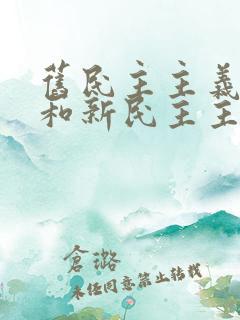 舊民主主義
和新民主主
倉璐
未经同意禁止转载